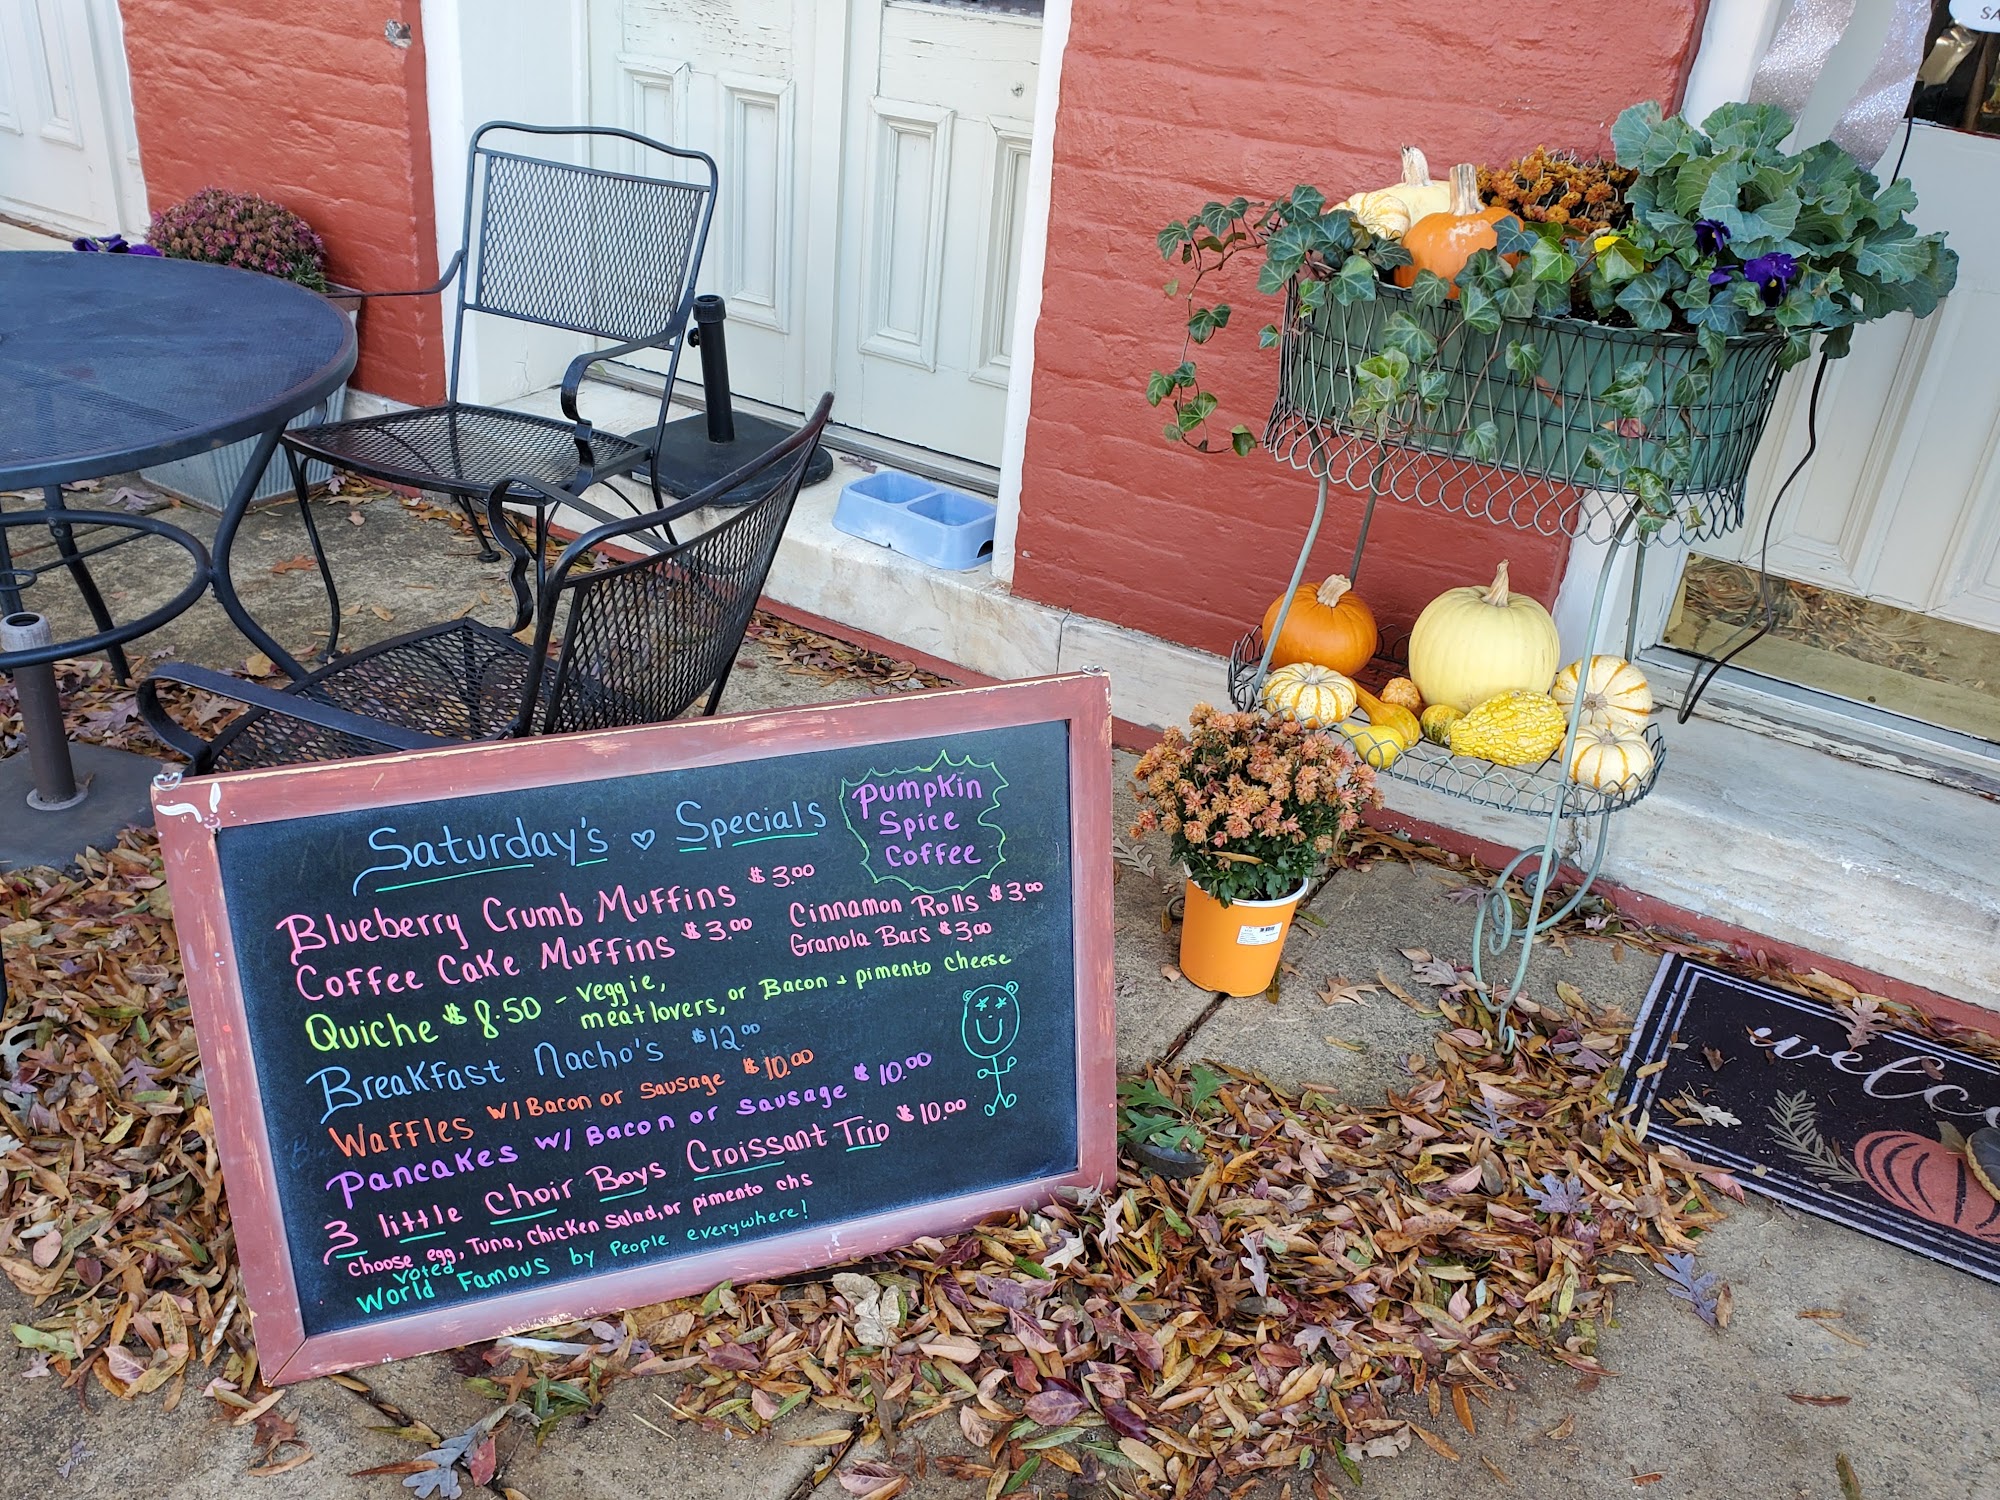 Saturday's ♡ Specials
Pumpkin
Spice
Coffee
Blueberry Crumb Muffins $3.00
Coffee Cake Muffins $3.00
Cinnamon Rolls $3.00
Granola Bars $3.00
Quiche $8.50 - veggie,
meat lovers, or Bacon + pimento cheese
Breakfast Nacho's $12.00
Waffles w/ Bacon or Sausage $10.00
Pancakes w/ Bacon or sausage $10.00
3 little Choir Boys Croissant Trio $10.00
Choose egg, Tuna, chicken salad, or pimento chs
voted
World Famous by People everywhere!
welco
SA